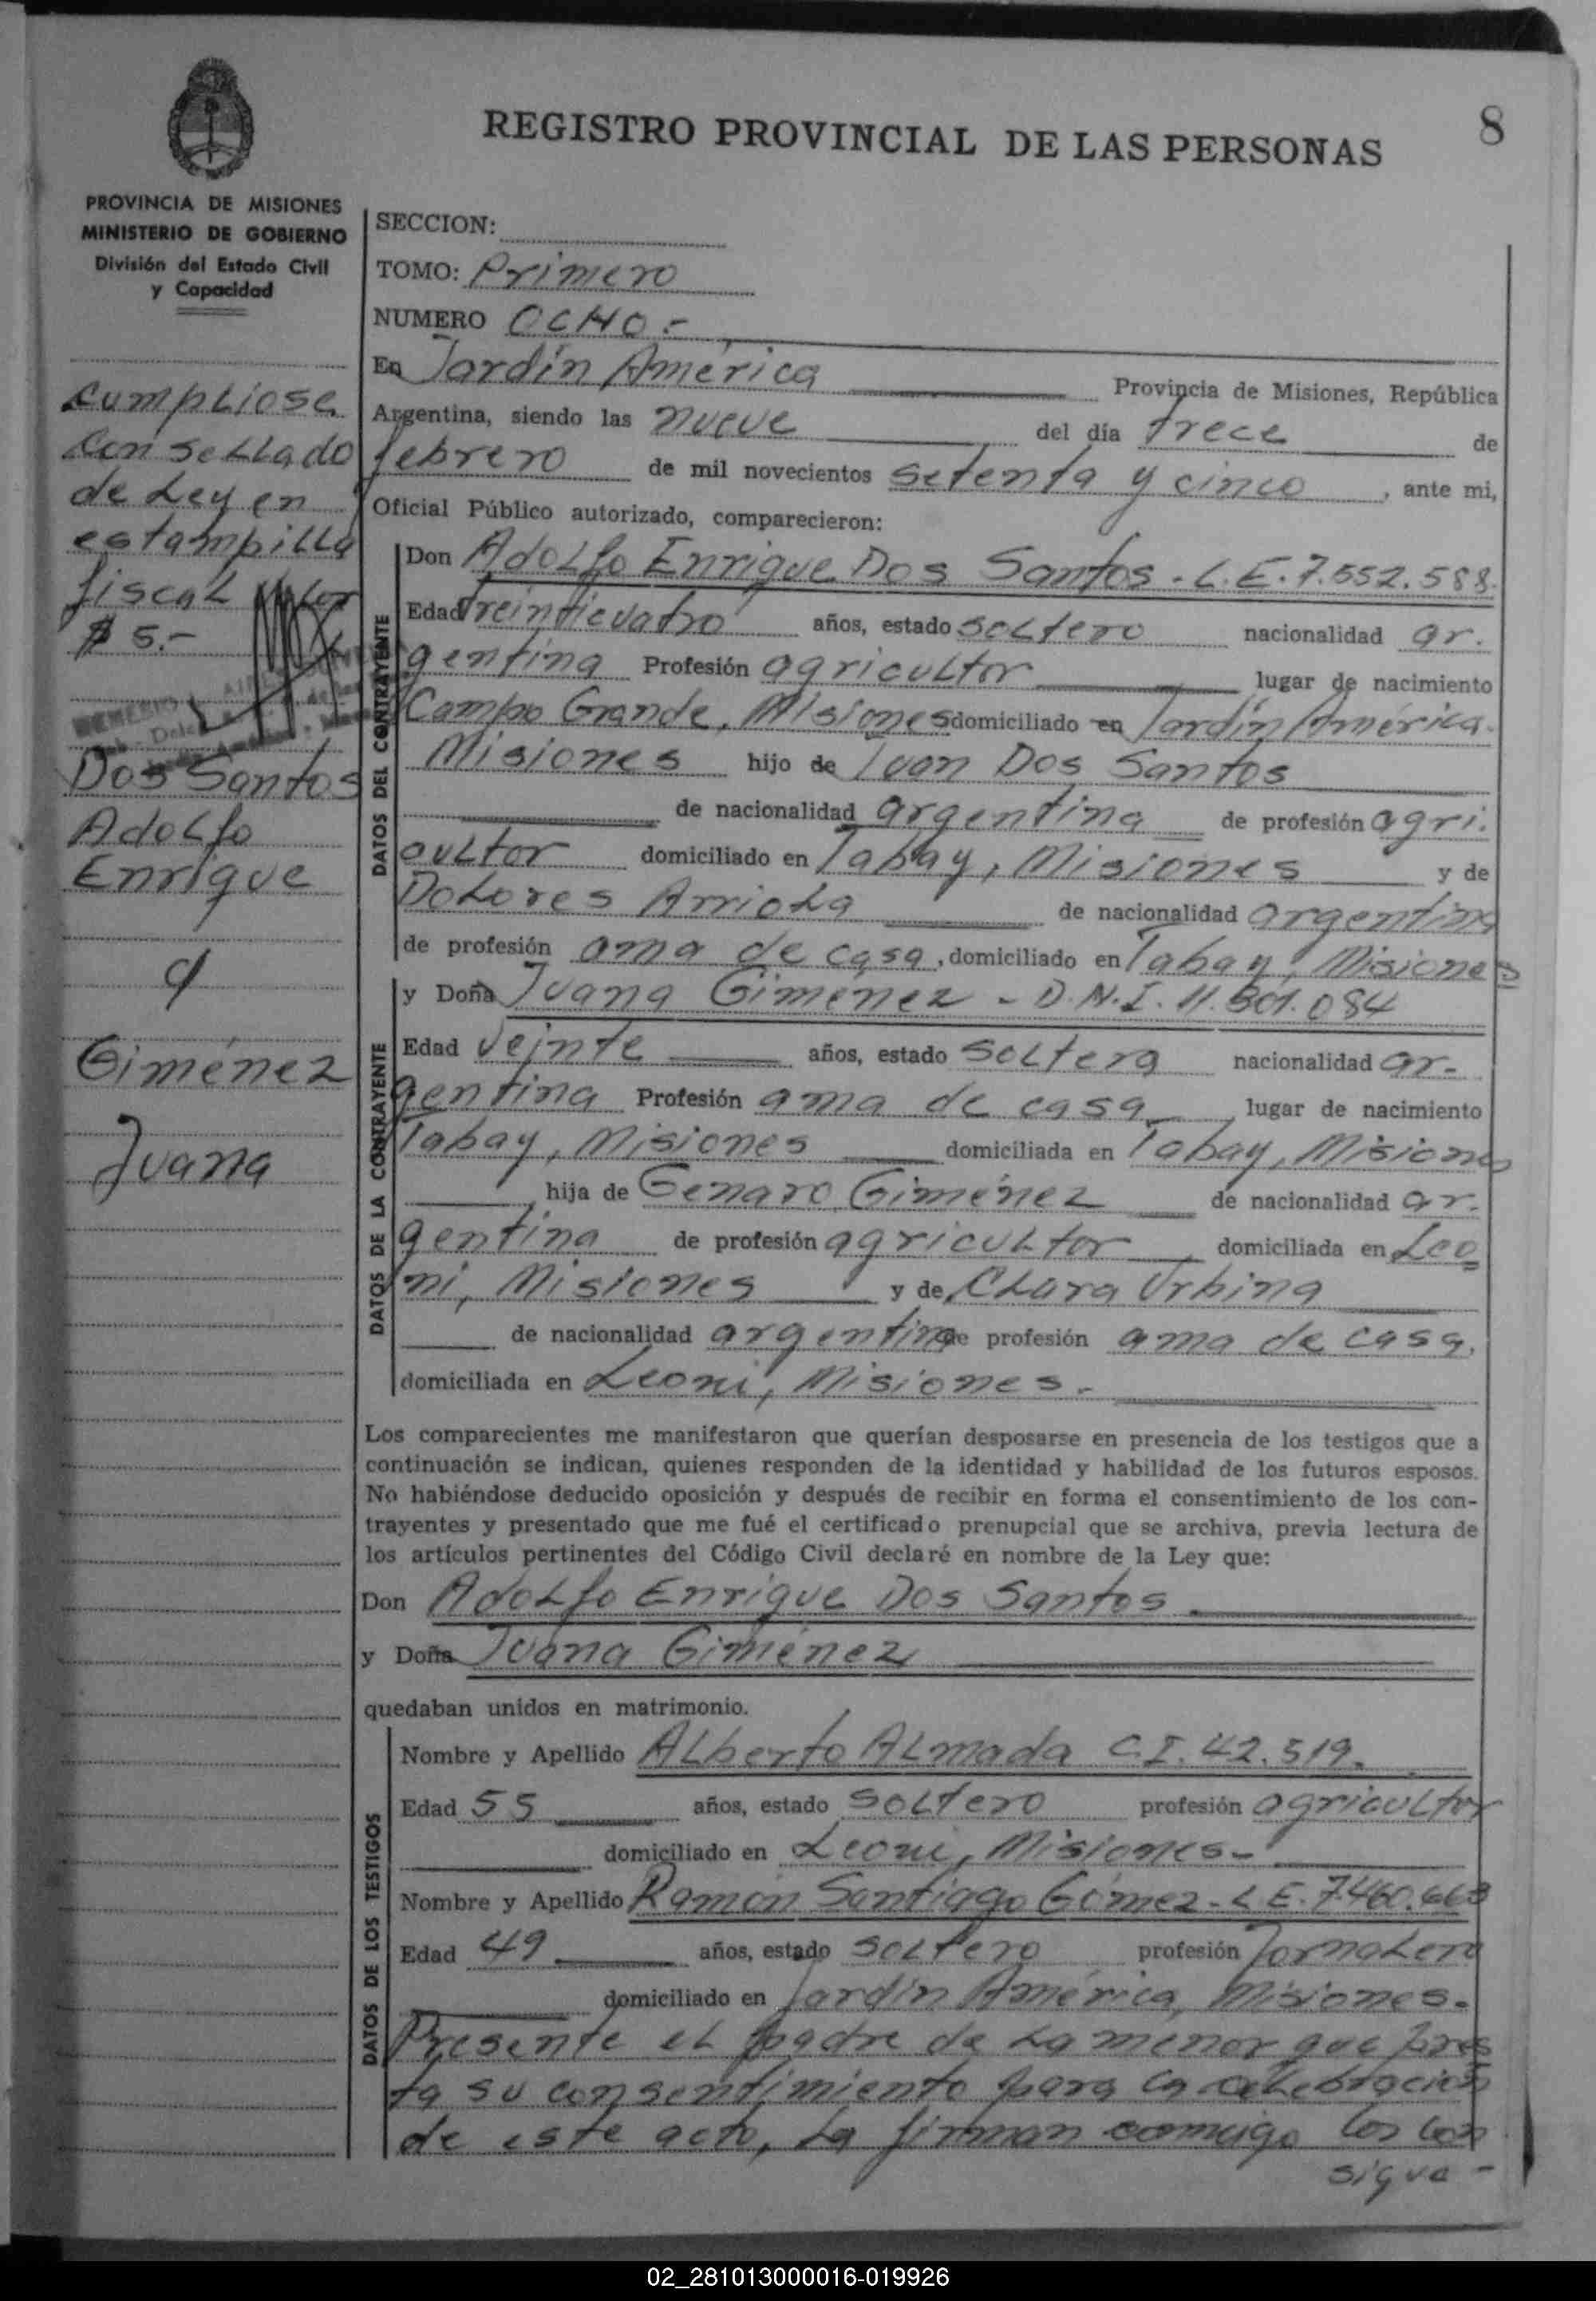 8
REGISTRO PROVINCIAL DE LAS PERSONAS
PROVINCIA DE MISIONES
MINISTERIO DE GOBIERNO
División del Estado Civil
y Capacidad
cumpliose
con sellado
de Ley en
estampilla
fiscal valor
$ 5.-
Dos Santos
Adolfo
Enrique
Giménez
Juana
SECCION:
TOMO: Primero
NUMERO OCHO.-
En Jardín América Provincia de Misiones, República
Argentina, siendo las nueve del día trece de
febrero de mil novecientos setenta y cinco, ante mi,
Oficial Público autorizado, comparecieron:
DATOS DEL CONTRAYENTE
Don Adolfo Enrique Dos Santos - L.E. 7.552.588.
Edad treinticuatro años, estado soltero nacionalidad ar-
gentina Profesión agricultor lugar de nacimiento
Campo Grande, Misiones domiciliado en Jardín América.
Misiones hijo de Juan Dos Santos
de nacionalidad argentina de profesión agri-
cultor domiciliado en Tabay, Misiones y de
Dolores Arriola de nacionalidad argentina
de profesión ama de casa, domiciliado en Tabay, Misiones
DATOS DE LA CONTRAYENTE
y Doña Juana Giménez - D.N.I. 11.301.084
Edad veinte años, estado soltera nacionalidad ar-
gentina Profesión ama de casa lugar de nacimiento
Tabay, Misiones domiciliada en Tabay, Misiones
hija de Genaro Giménez de nacionalidad ar-
gentina de profesión agricultor, domiciliada en Leo
ni, Misiones y de Clara Urbina
de nacionalidad argentina de profesión ama de casa,
domiciliada en Leoni, Misiones.-
Los comparecientes me manifestaron que querían desposarse en presencia de los testigos que a
continuación se indican, quienes responden de la identidad y habilidad de los futuros esposos.
No habiéndose deducido oposición y después de recibir en forma el consentimiento de los con-
trayentes y presentado que me fué el certificado prenupcial que se archiva, previa lectura de
los artículos pertinentes del Código Civil declaré en nombre de la Ley que:
Don Adolfo Enrique Dos Santos
y Doña Juana Giménez
quedaban unidos en matrimonio.
DATOS DE LOS TESTIGOS
Nombre y Apellido Alberto Almada C.I. 42.519.
Edad 55 años, estado soltero profesión agricultor
domiciliado en Leoni, Misiones-
Nombre y Apellido Ramón Santiago Gómez - L.E. 7.460.663
Edad 49 años, estado soltero profesión Jornalero
domiciliado en Jardín América, Misiones.
Presente el padre de la menor que pres
ta su consentimiento para la celebración
de este acto, la firman conmigo los con
sigue -
02_281013000016-019926